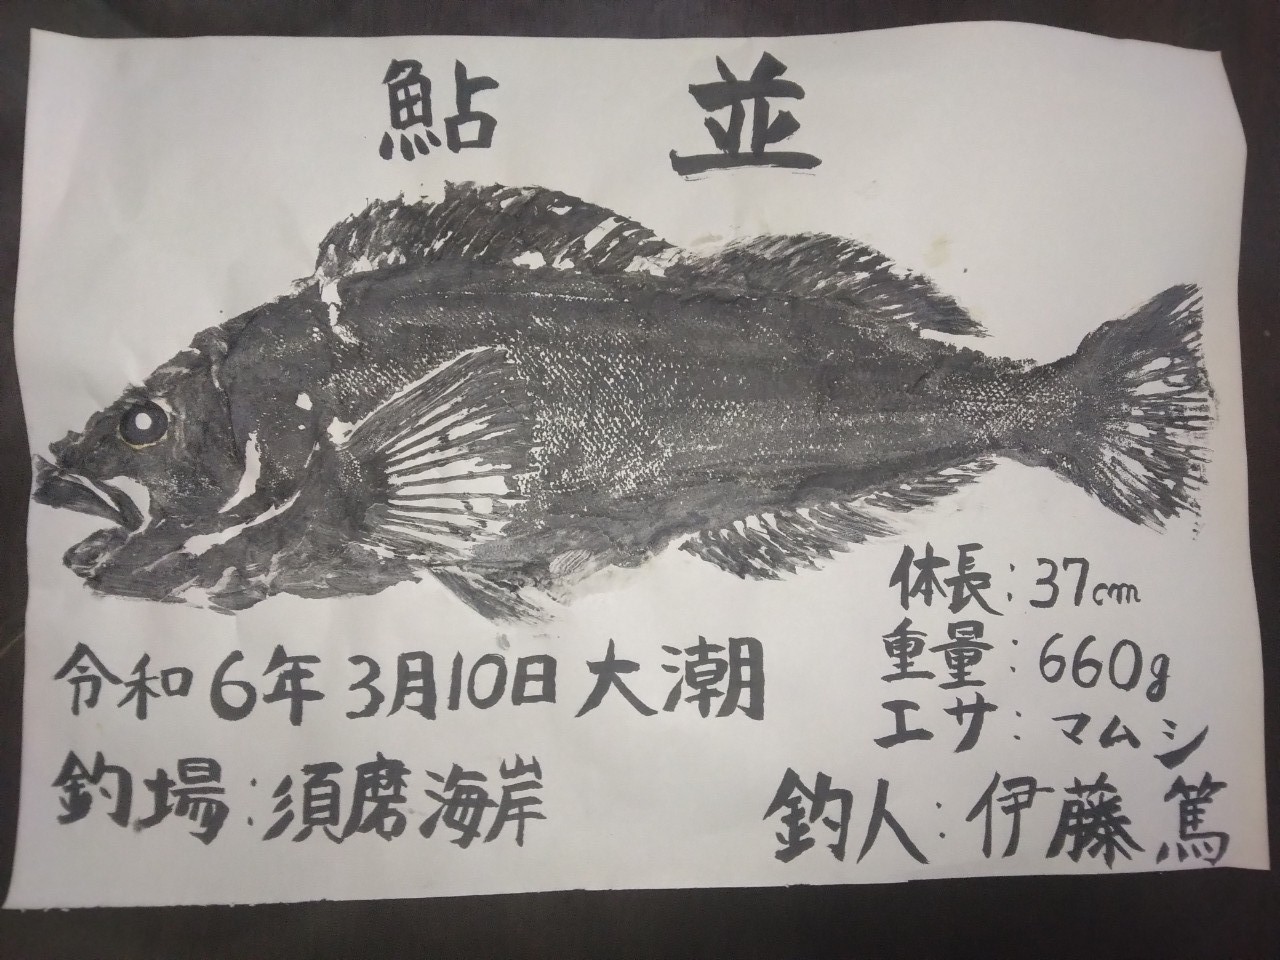 鮎並
体長：37cm
重量：660g
エサ：マムシ
令和6年3月10日大潮
釣場：須磨海岸
釣人：伊藤篤